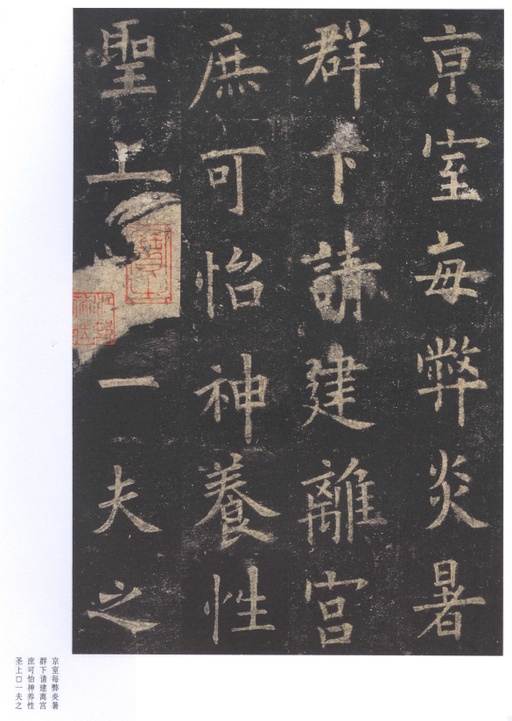 京室每弊炎暑
群下請建離宮
庶可怡神養性
聖上一夫之
京室每弊炎暑
群下请建离宫
庶可怡神养性
圣上□一夫之